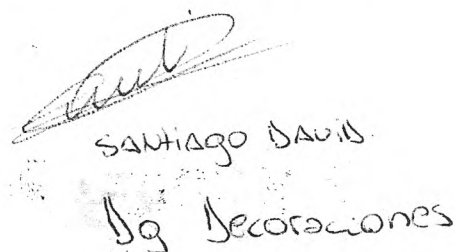 SANTIAGO DAVID
Dg Decoraciones